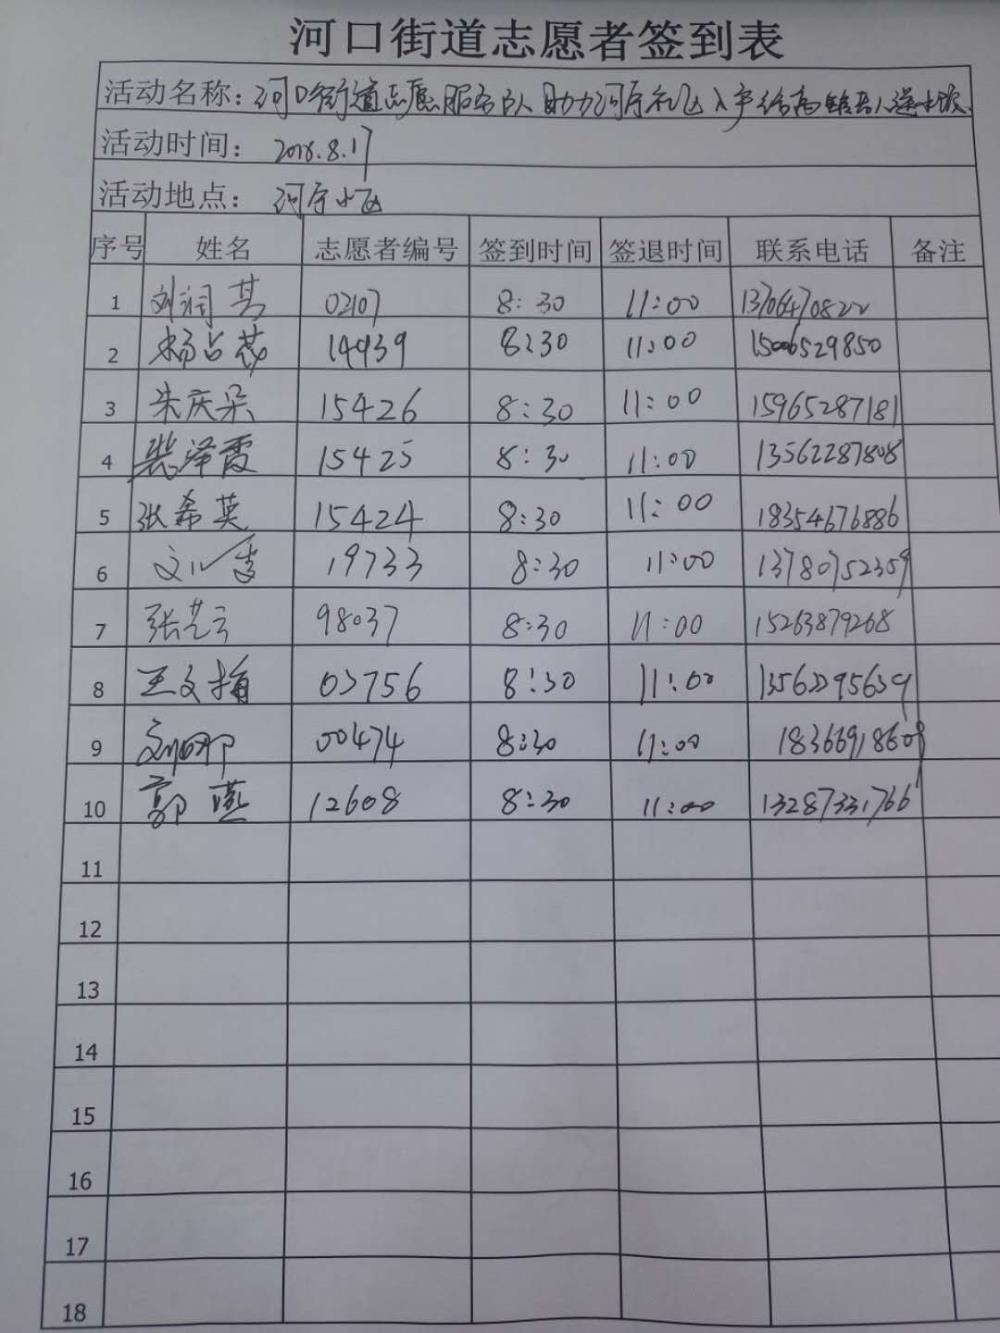 河口街道志愿者签到表
活动名称：河口街道志愿服务队助力河房社区入户给高龄老人送水饺
活动时间：2018.8.17
活动地点：河房小区
序号 姓名 志愿者编号 签到时间 签退时间 联系电话 备注
1 刘润芳 02107 8:30 11:00 13706470822
2 杨占荻 14939 8:30 11:00 15006529850
3 朱庆朵 15426 8:30 11:00 15965287181
4 裴泽霞 15425 8:30 11:00 13562287808
5 张希英 15424 8:30 11:00 18354676886
6 19733 8:30 11:00 13780752359
7 张艺云 98037 8:30 11:00 15263879268
8 王文梅 03756 8:30 11:00 13562295639
9 00474 8:30 11:00 18366918608
10 郭燕 12608 8:30 11:00 13287331766
11
12
13
14
15
16
17
18